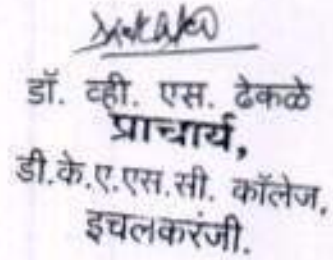 डॉ. व्ही. एस. ढेकळे
प्राचार्य,
डी.के.ए.एस.सी. कॉलेज,
इचलकरंजी.